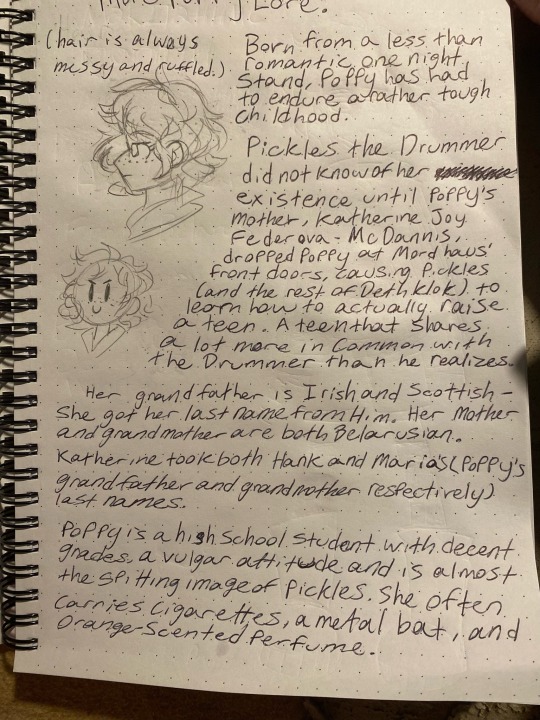 More Poppy Lore:
(hair is always
messy and ruffled.)
Born from a less than
romantic one night
Stand, Poppy has had
to endure a rather tough
childhood.
Pickles the Drummer
did not know of her
existence until Poppy's
mother, Katherine Joy
Federova-McDannis,
dropped Poppy at Mordhaus'
front doors, causing Pickles
(and the rest of Dethklok) to
learn how to actually raise
a teen. A teen that shares
a lot more in common with
the Drummer than he realizes.
Her grandfather is Irish and Scottish-
She got her last name from Him. Her Mother
and grandmother are both Belarusian.
Katherine took both Hank and Maria's (Poppy's
grandfather and grandmother respectively)
last names.
Poppy is a high School Student with decent
grades, a vulgar attitude and is almost
the spitting image of Pickles. She often
Carries Cigarettes, a metal bat, and
Orange-Scented Perfume.